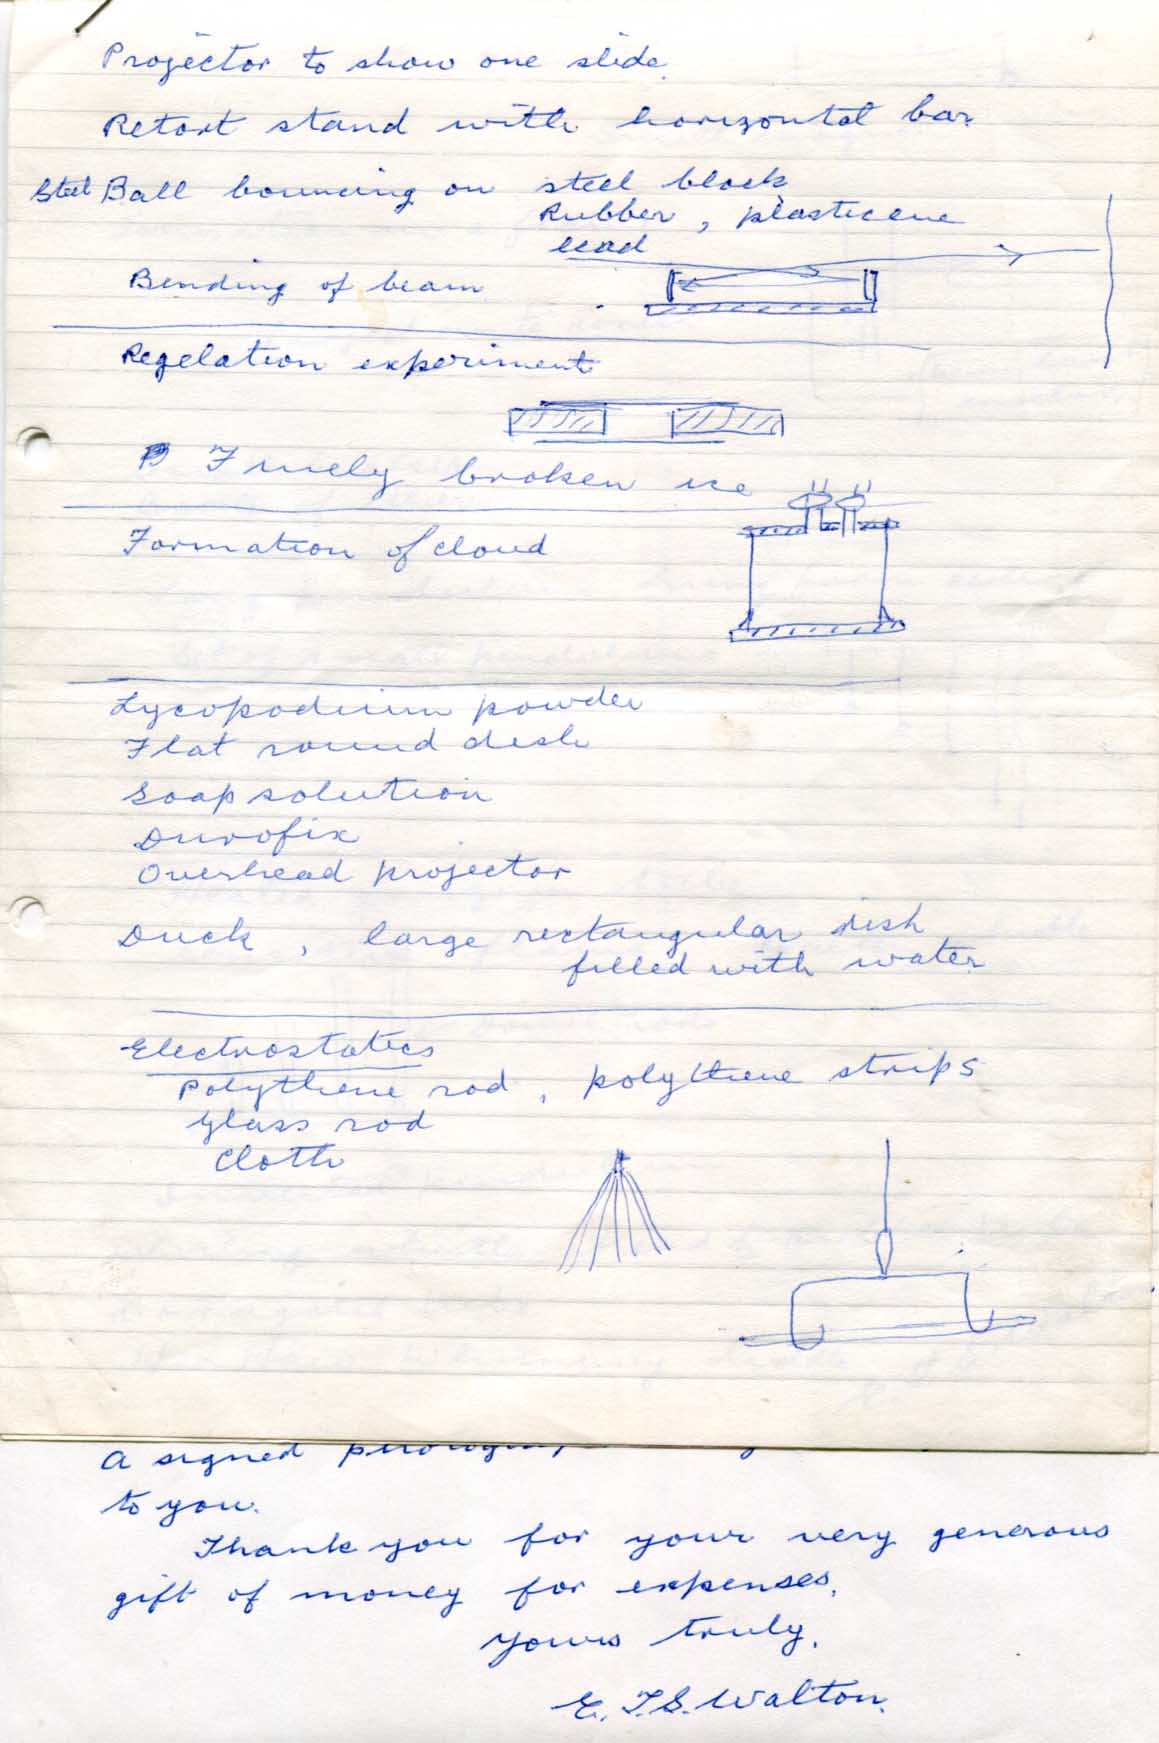 Projector to show one slide.
Retort stand with horizontal bar
Steel Ball bouncing on steel block
Rubber, plasticene
lead
Bending of beam
Regelation experiment
Finely broken ice
Formation of cloud
Lycopodium powder
Flat round dish
Soap solution
Durofix
Overhead projector
Duck, large rectangular dish
filled with water
Electrostatics
Polythene rod, polythene strips
Glass rod
Cloth
A signed
to you.
Thank you for your very generous
gift of money for expenses.
Yours truly,
E. T. S. Walton.